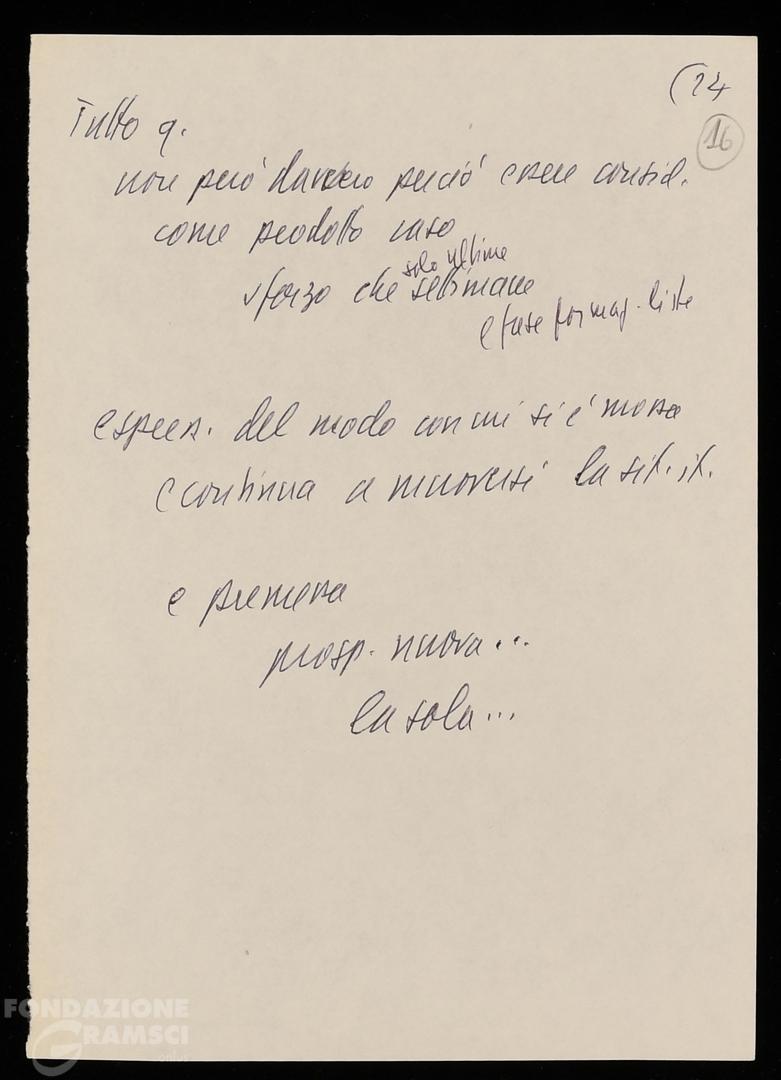 (24
16
Tutto q.
non può davvero perciò essere consid.
come prodotto caso
solo ultime
sforzo che settimane
e fase formaz. liste
espress. del modo con cui si è mossa
e continua a muoversi la sit. it.
e premessa
prosp. nuova...
la sola...
FONDAZIONE
GRAMSCI
onlus